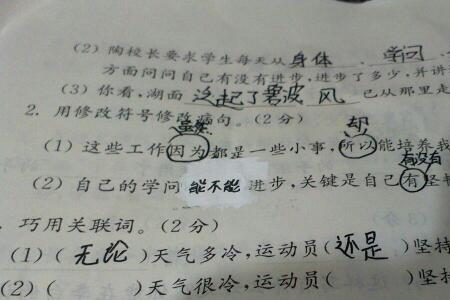 (2) 陶校长要求学生每天从 身体 、 学问
方面问问自己有没有进步,进步了多少,并讲
(3) 你看,湖面 泛起了碧波 风 已从那里走
2. 用修改符号修改病句。(2分)
虽然 却
(1) 这些工作因为都是一些小事,所以能培养我
有没有
(2) 自己的学问 能不能 进步,关键是自己有坚持
. 巧用关联词。(2分)
(1) ( 无论 )天气多冷,运动员( 还是 )坚持
(2) ( )天气很冷,运动员( )坚持